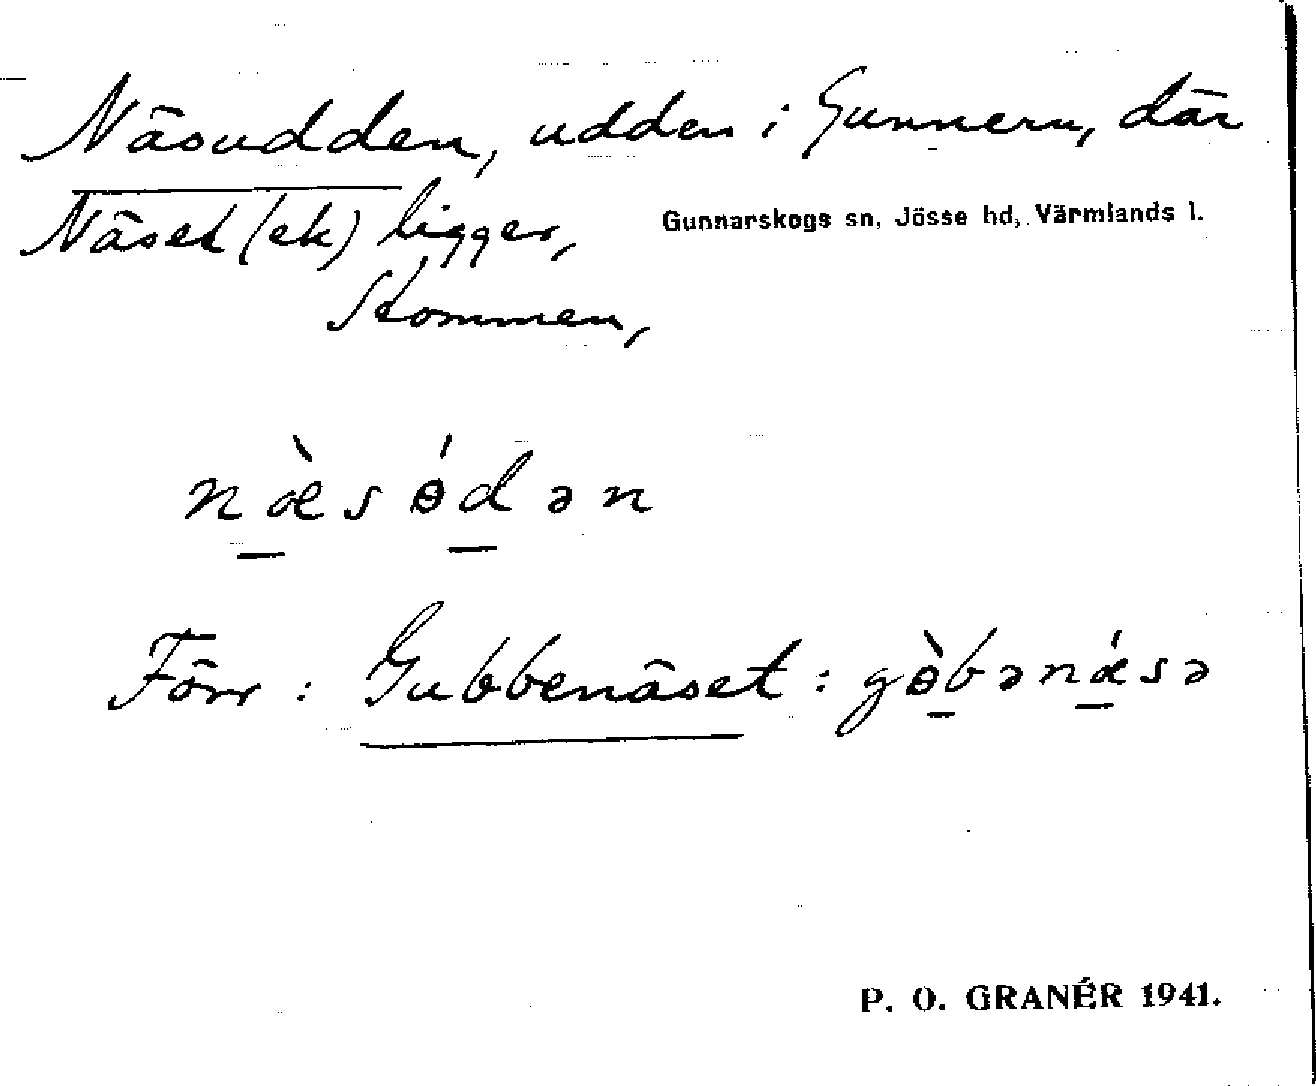 Näsudden, udden i Gunnern, där
Näset (ek) ligger,
Gunnarskogs sn, Jösse hd, Värmlands l.
Stommen,
næ̀sɵ́dən
Förr : Gubbenäset : gɵ̀bənǽsə
P. O. GRANÉR 1941.